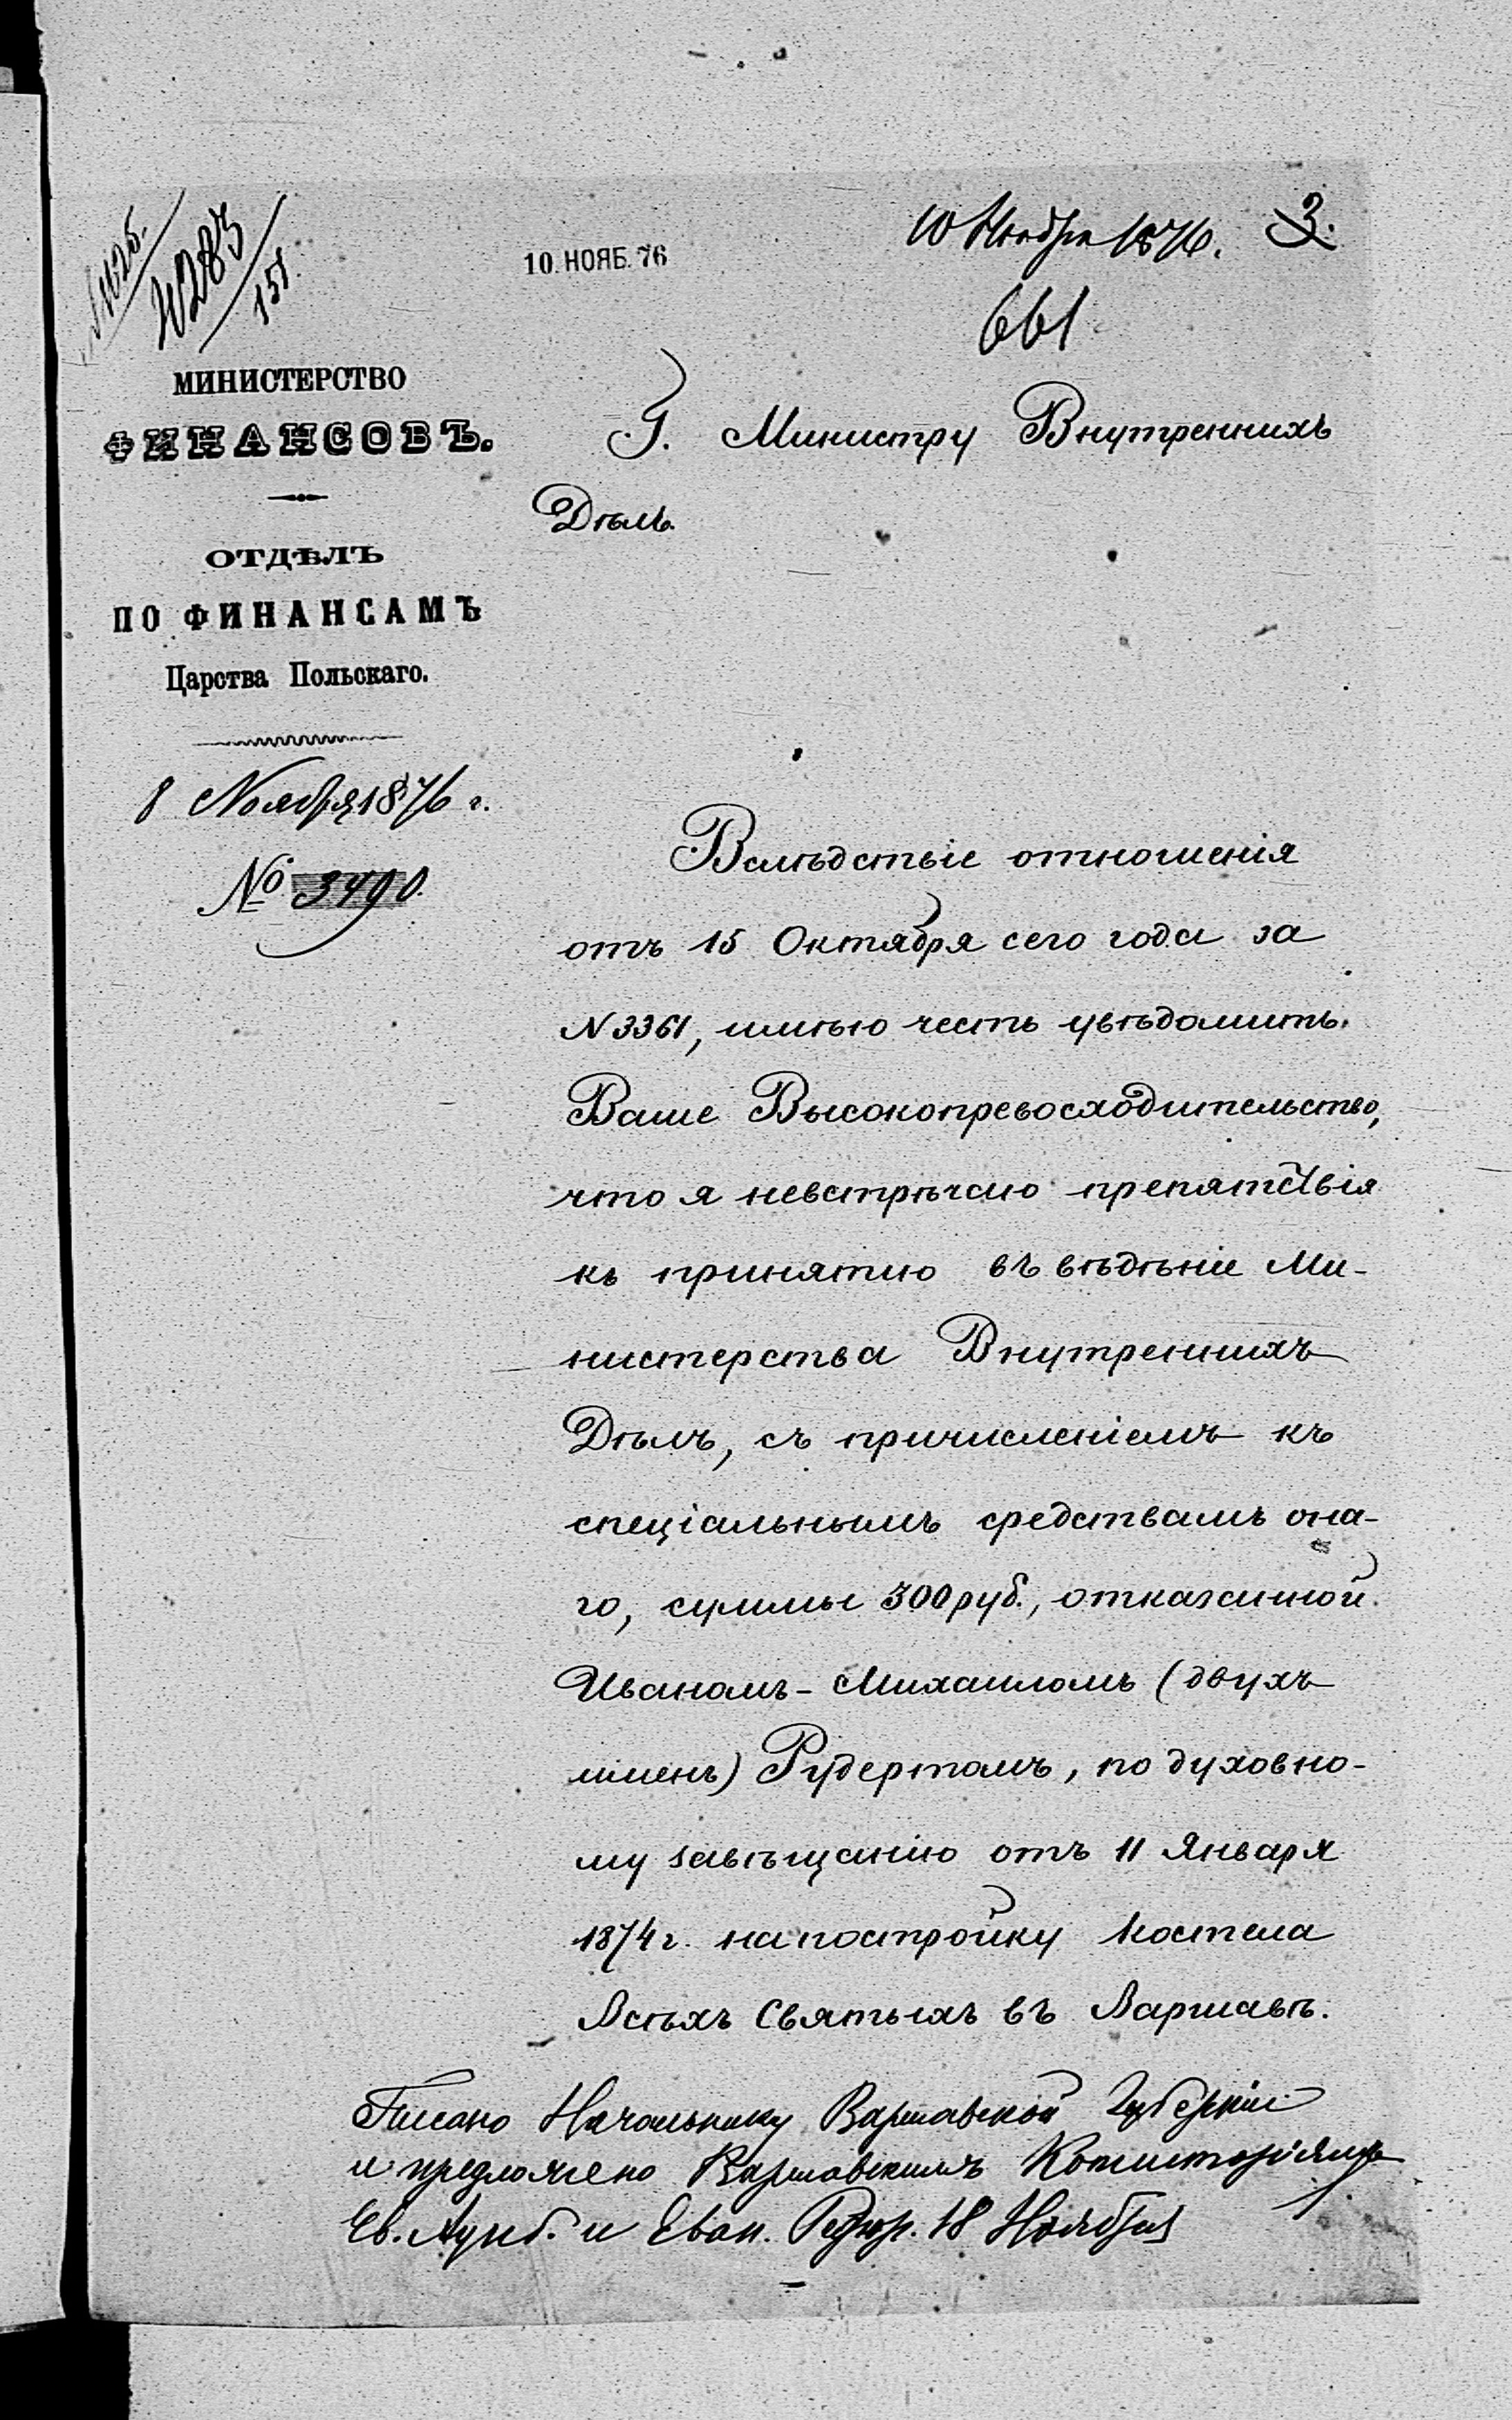 10. НОЯБ. 76
10 Ноября 1876. 3.
661
МИНИСТЕРСТВО
ФИНАНСОВЪ.
ОТДѢЛЪ
ПО ФИНАНСАМЪ
Царства Польскаго.
8 Ноября 1876 г.
№ 3490.
Г. Министру Внутреннихъ
Дѣлъ.
Вслѣдствіе отношенія
отъ 15 Октября сего года за
N 3361, имѣю честь увѣдомить
Ваше Высокопревосходительство,
что я невстрѣчаю препятствія
къ принятию въ вѣдѣніе Ми-
нистерства Внутреннихъ
Дѣлъ, съ причисленіемъ къ
спеціальнымъ средствамъ она-
го, суммы 300 руб., отказанной
Иваномъ-Михаиломъ (двухъ
именъ) Рудертомъ, по духовно-
му завѣщанію отъ 11 Января
1874 г. на постройку костела
Всѣхъ Святыхъ въ Варшавѣ.
Писано Начальнику Варшавской Губерніи
и предложено Варшавскимъ Консисторіямъ
Ев. Аугсб. и Еван. Реформ. 18 Ноября